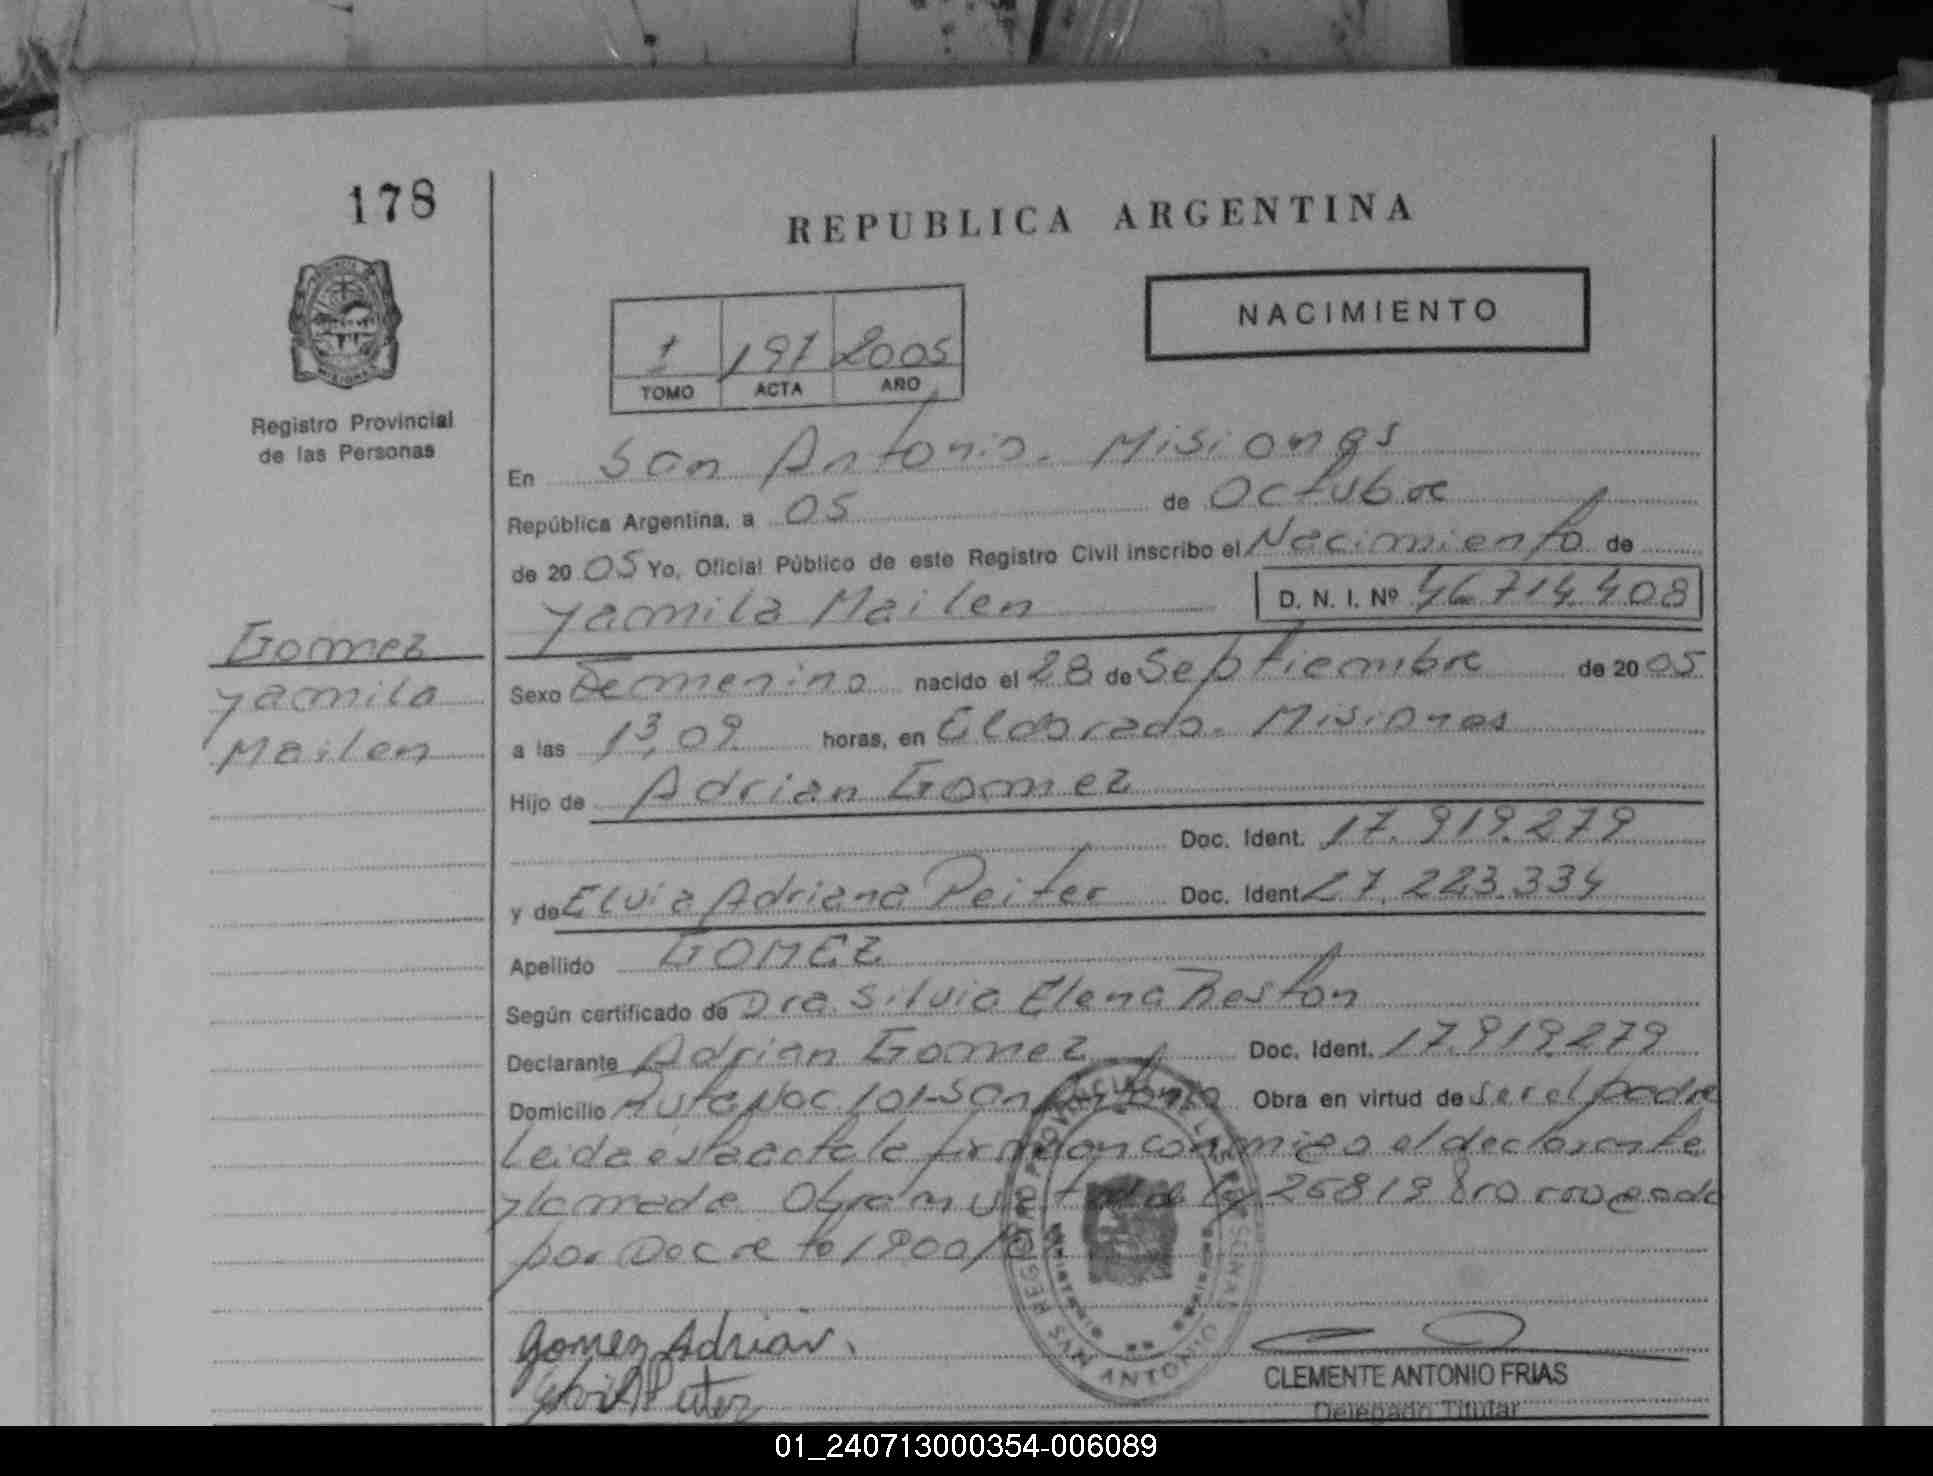 178
REPUBLICA ARGENTINA
NACIMIENTO
1 191 2005
TOMO ACTA AÑO
Registro Provincial
de las Personas
En San Antonio. Misiones
República Argentina, a 05 de Octubre
de 20 05 Yo, Oficial Público de este Registro Civil inscribo el Nacimiento de
Yamila Mailen D. N. I. Nº 46.714.408
Gomez
Yamila
Mailen
Sexo Femenino nacido el 28 de Septiembre de 20 05
a las 13,09 horas, en Eldorado. Misiones
Hijo de Adrian Gomez
Doc. Ident. 17.919.279
y de Elvia Adriana Peiter Doc. Ident. 27.223.334
Apellido GOMEZ
Según certificado de Dra. Silvia Elena Reston
Declarante Adrian Gomez Doc. Ident. 17.919.279
Domicilio Ruta Nac 101-San Antonio Obra en virtud de ser el padre
Leida esta acta la firman conmigo el declarante
y la madre. Obra en virtud de ley 26819
por Decreto 1900/
Gomez Adrian.
Peiter
REGISTRO PROVINCIAL DE LAS PERSONAS
SAN ANTONIO
MISIONES
CLEMENTE ANTONIO FRIAS
Delegado Titular
01_240713000354-006089